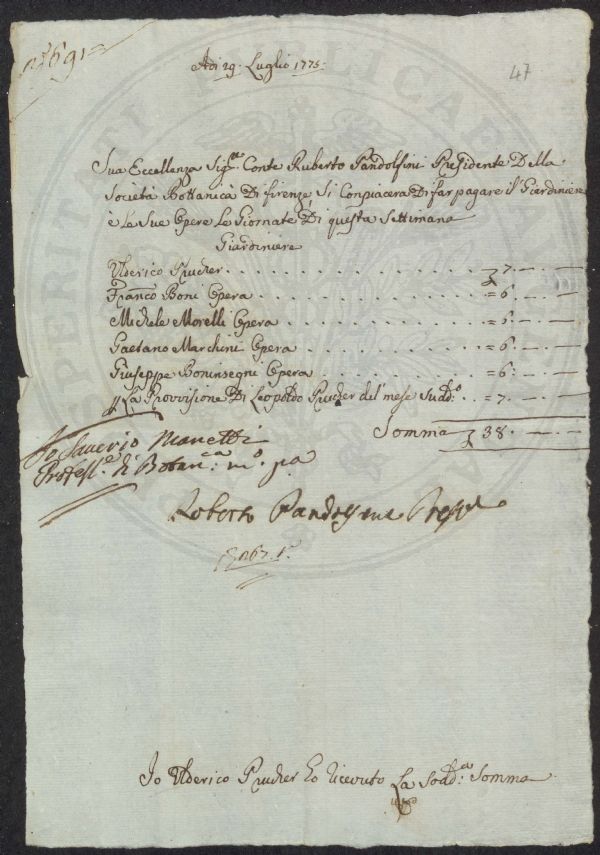 Adì 29: Luglio 1775:
47
Sua Eccellenza Sig.ra Conte Ruberto Pandolfini Presidente Della
Società Bottanica Di Firenze Si Conpiacera Di far pagare il Giardiniere
è La Sue Opere Le Giornate Di questa Settimana
Giardiniere
Ulderico Prucher . . . . 7. — . —
Franco Boni Opera . . . . = 6. — . —
Michele Morelli Opera . . . . = 6. — . —
Gaetano Marchini Opera . . . . = 6: — . —
Giuseppe Boninsegni Opera . . . . = 6: — . —
La Provvisione Di Leopoldo Prucher del mese Sudd.o . . = 7. — . —
Somma 38. — . —
Io Saverio Manetti
Profess.e di Botan.ca m.o pa
Roberto Pandolfini Presid.e
267. 1.
Io Ulderico Prucher ho riceuto La Sodd.a Somma
PROSPERITATI PUBLICAE